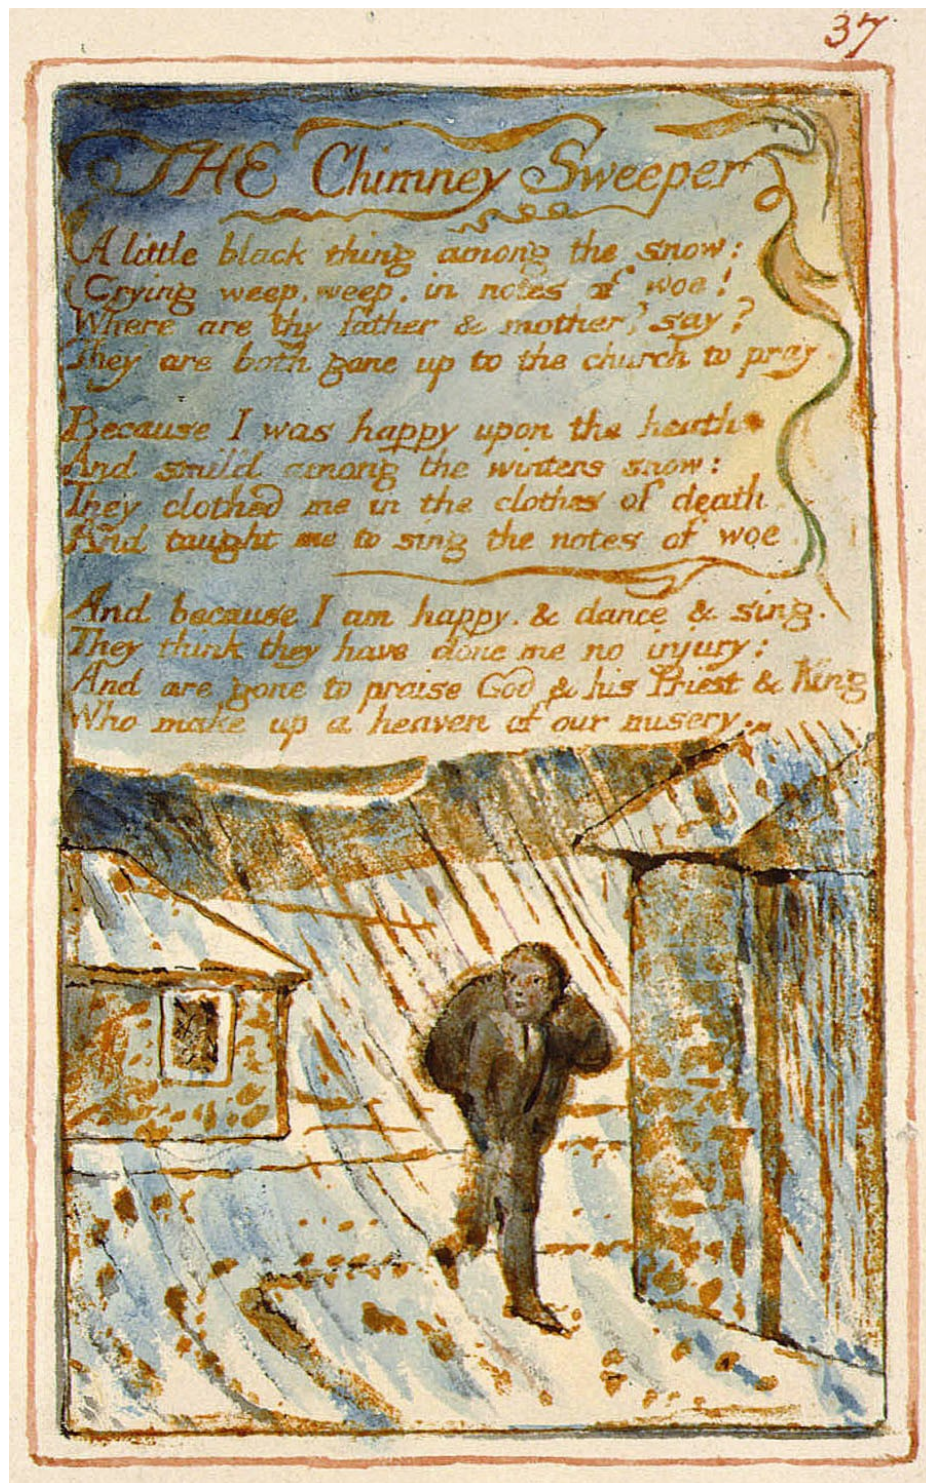 37
THE Chimney Sweeper
A little black thing among the snow:
Crying weep, weep, in notes of woe!
Where are thy father & mother? say?
They are both gone up to the church to pray.
Because I was happy upon the heath.
And smil'd among the winters snow:
They clothed me in the clothes of death
And taught me to sing the notes of woe.
And because I am happy. & dance & sing.
They think they have done me no injury:
And are gone to praise God & his Priest & King
Who make up a heaven of our misery.